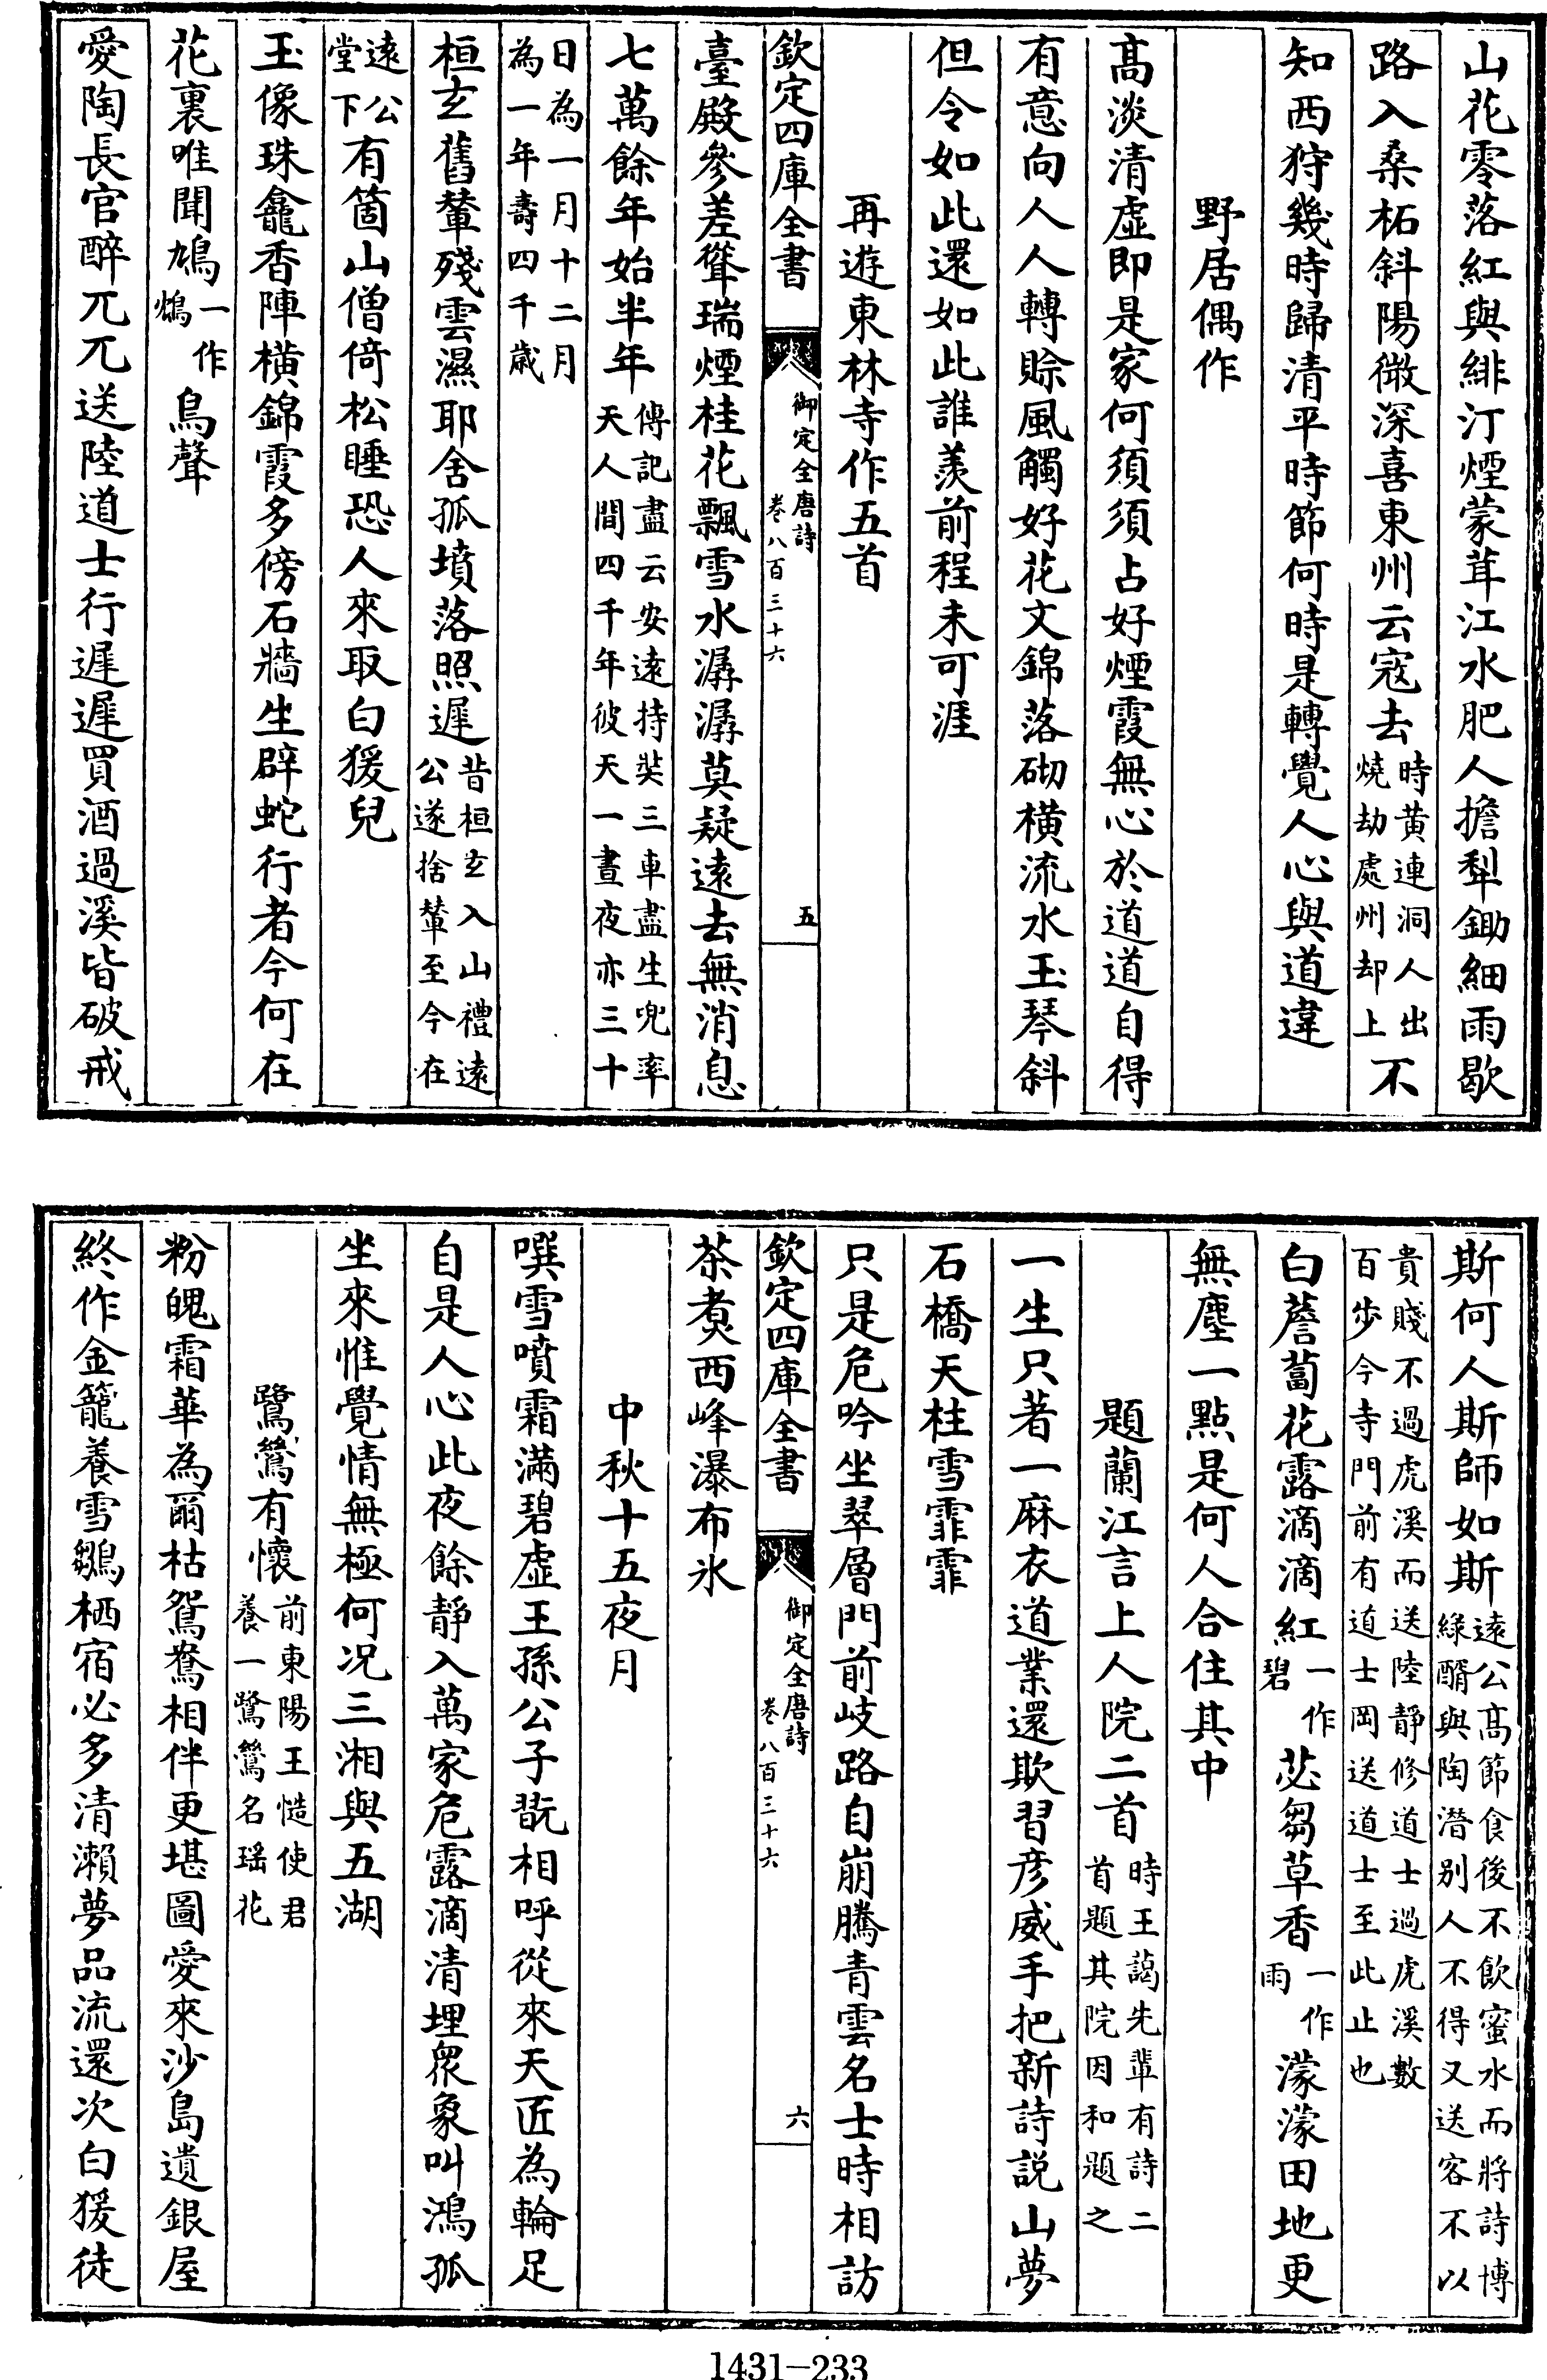 山花零落紅與緋汀煙蒙茸江水肥人擔犁鋤細雨歇
路入桑柘斜陽微深喜東州云寇去時黄連洞人出燒劫處州却上不
知西狩幾時歸清平時節何時是轉覺人心與道違
野居偶作
髙淡清虚即是家何須須占好煙霞無心於道道自得
有意向人人轉賒風觸好花文錦落砌橫流水玉琴斜
但令如此還如此誰羨前程未可涯
再遊東林寺作五首
欽定四庫全書
御定全唐詩
卷八百三十六
五
臺殿參差聳瑞煙桂花飄雪水潺潺莫疑遠去無消息
七萬餘年始半年傳記盡云安遠持奘三車盡生兜率天人間四千年彼天一晝夜亦三十
日為一月十二月為一年壽四千歳
桓玄舊輦殘雲濕耶舍孤墳落照遲昔桓玄入山禮遠公遂捨輦至今在
遠公堂下有箇山僧倚松睡恐人來取白猨兒
玉像珠龕香陣橫錦霞多傍石牆生辟蛇行者今何在
花裏唯聞鳩一作鴆鳥聲
愛陶長官醉兀兀送陸道士行遲遲買酒過溪皆破戒
斯何人斯師如斯遠公髙節食後不飲蜜水而將詩博綠醑與陶潛别人不得又送客不以
貴賤不過虎溪而送陸靜修道士過虎溪數百步今寺門前有道士岡送道士至此止也
白薝蔔花露滴滴紅一作碧苾芻草香一作雨濛濛田地更
無塵一點是何人合住其中
題蘭江言上人院二首時王蔼先輩有詩二首題其院因和題之
一生只著一麻衣道業還欺習彦威手把新詩説山夢
石橋天柱雪霏霏
只是危吟坐翠層門前岐路自崩騰青雲名士時相訪
欽定四庫全書
御定全唐詩
卷八百三十六
六
茶煑西峰瀑布氷
中秋十五夜月
噀雪噴霜滿碧虚王孫公子翫相呼從來天匠為輪足
自是人心此夜餘靜入萬家危露滴清埋衆象叫鴻孤
坐來惟覺情無極何况三湘與五湖
鷺鷥有懷前東陽王慥使君養一鷺鷥名瑶花
粉魄霜華為爾枯鴛鴦相伴更堪圖愛來沙島遺銀屋
終作金籠養雪鶵栖宿必多清瀨夢品流還次白猨徒
1431—233